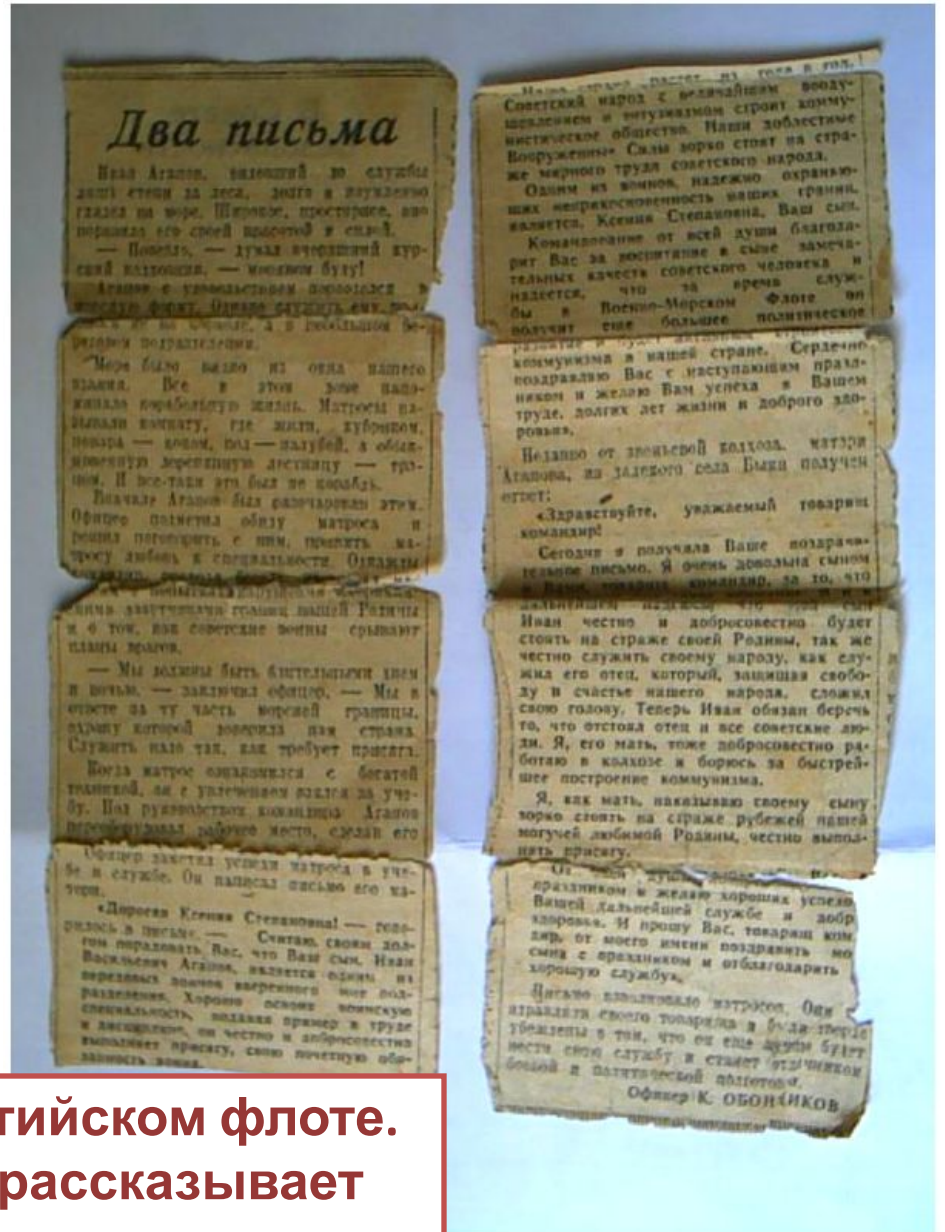 Два письма
Иван Агапов, видевший до службы
лишь степи да леса, долго и изумленно
глядел на море. Широкое, просторное, оно
поразило его своей красотой и силой.
— Повезло, — думал вчерашний кур-
ский колхозник, — моряком буду!
Агапов с удовольствием переоделся в
морскую форму. Однако служить ему
не на корабле, а в небольшом бе-
реговом подразделении.
Море было видно из окна нашего
здания. Все в этом доме напо-
минало корабельную жизнь. Матросы на-
зывали комнату, где жили, кубриком,
повара — коком, пол — палубой, а обык-
новенную деревянную лестницу — тра-
пом. И все-таки это был не корабль.
Вначале Агапов был разочарован этим.
Офицер заметил обиду матроса и
решил поговорить с ним, привить ма-
тросу любовь к специальности. Однажды
ми нашей Родины
и о том, как советские воины срывают
планы врагов.
— Мы должны быть бдительными днем
и ночью, — заключил офицер. — Мы в
ответе за ту часть морской границы,
охрану которой доверила нам страна.
Служить надо так, как требует присяга.
Когда матрос ознакомился с богатой
техникой, он с увлечением взялся за уче-
бу. Под руководством командира Агапов
переоборудовал рабочее место, сделав его
Офицер заметил успехи матроса в уче-
бе и службе. Он написал письмо его ма-
тери.
«Дорогая Ксения Степановна! — гово-
рилось в письме. — Считаю своим дол-
гом порадовать Вас, что Ваш сын, Иван
Васильевич Агапов, является одним из
передовых воинов вверенного мне под-
разделения. Хорошо освоив воинскую
специальность, подавая пример в труде
и дисциплине, он честно и добросовестно
выполняет присягу, свою почетную обя-
занность воина.
растет из года в год.
Советский народ с величайшим вооду-
шевлением и энтузиазмом строит комму-
нистическое общество. Наши доблестные
Вооруженные Силы зорко стоят на стра-
же мирного труда советского народа.
Одним из воинов, надежно охраняю-
щих неприкосновенность наших границ,
является, Ксения Степановна, Ваш сын.
Командование от всей души благода-
рит Вас за воспитание в сыне замеча-
тельных качеств советского человека и
надеется, что за время служ-
бы в Военно-Морском Флоте он
получит еще большее политическое
развитие и будет
коммунизма в нашей стране. Сердечно
поздравляю Вас с наступающим празд-
ником и желаю Вам успеха в Вашем
труде, долгих лет жизни и доброго здо-
ровья».
Недавно от звеньевой колхоза, матери
Агапова, из далекого села Быки получен
ответ:
«Здравствуйте, уважаемый товарищ
командир!
Сегодня я получила Ваше поздрави-
тельное письмо. Я очень довольна сыном
и Вами, товарищ командир, за то, что
дальнейшем надеюсь, что мой сын
Иван честно и добросовестно будет
стоять на страже своей Родины, так же
честно служить своему народу, как слу-
жил его отец, который, защищая свобо-
ду и счастье нашего народа, сложил
свою голову. Теперь Иван обязан беречь
то, что отстоял отец и все советские лю-
ди. Я, его мать, тоже добросовестно ра-
ботаю в колхозе и борюсь за быстрей-
шее построение коммунизма.
Я, как мать, наказываю своему сыну
зорко стоять на страже рубежей нашей
могучей любимой Родины, честно выпол-
нять присягу.
От всей души
праздником и желаю хороших успехо
Вашей дальнейшей службе и добр
здоровья. И прошу Вас, товарищ ком
дир, от моего имени поздравить мо
сына с праздником и отблагодарить
хорошую службу».
Письмо взволновало матросов. Они
здравляли своего товарища и были твердо
убеждены в том, что он еще лучше будет
нести свою службу и станет отличником
боевой и политической подготовки.
Офицер К. ОБОНЧИКОВ
тийском флоте.
рассказывает